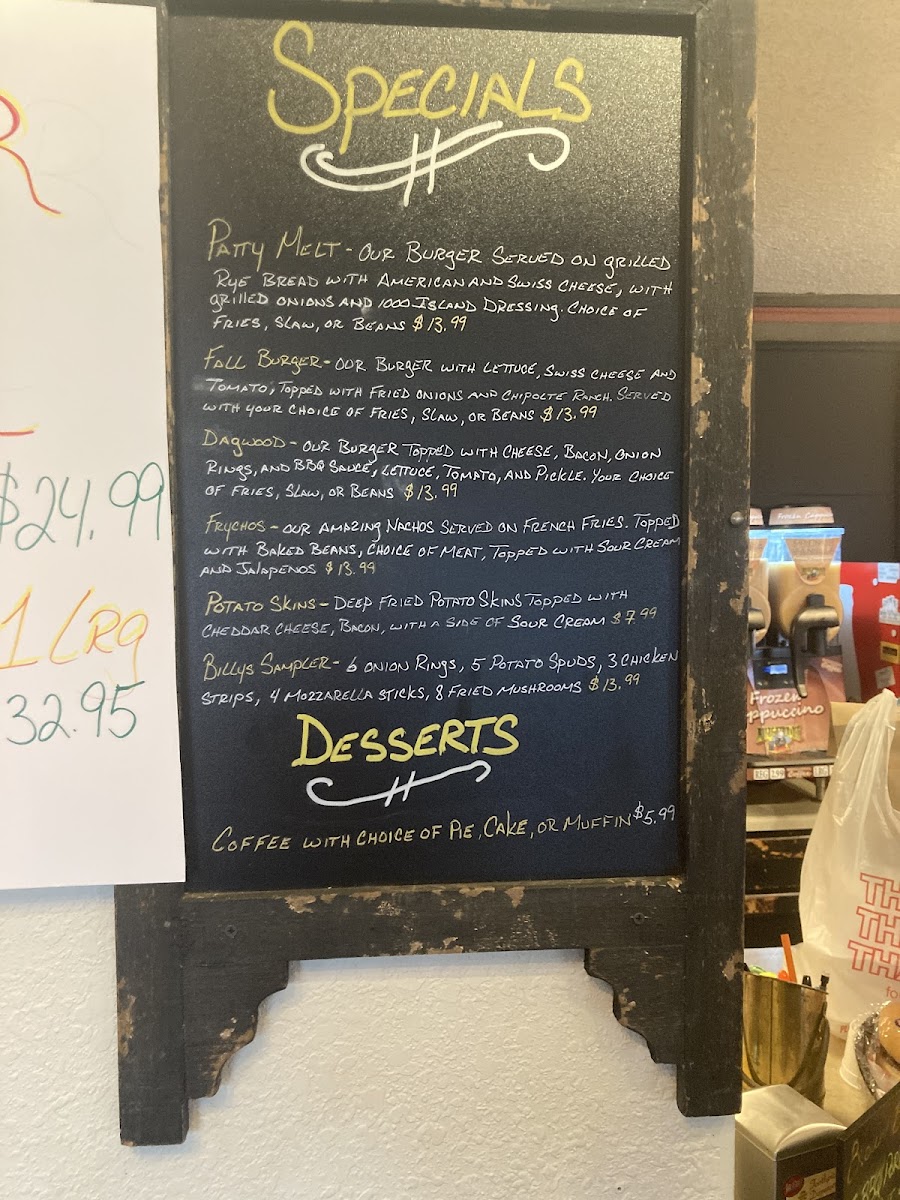 SPECIALS
PATTY MELT - OUR BURGER SERVED ON GRILLED
RYE BREAD WITH AMERICAN AND SWISS CHEESE, WITH
GRILLED ONIONS AND 1000 ISLAND DRESSING. CHOICE OF
FRIES, SLAW, OR BEANS $13.99
FALL BURGER - OUR BURGER WITH LETTUCE, SWISS CHEESE AND
TOMATO, TOPPED WITH FRIED ONIONS AND CHIPOLTE RANCH. SERVED
WITH YOUR CHOICE OF FRIES, SLAW, OR BEANS $13.99
DAGWOOD - OUR BURGER TOPPED WITH CHEESE, BACON, ONION
RINGS, AND BBQ SAUCE, LETTUCE, TOMATO, AND PICKLE. YOUR CHOICE
OF FRIES, SLAW, OR BEANS $13.99
FRYCHOS - OUR AMAZING NACHOS SERVED ON FRENCH FRIES. TOPPED
WITH BAKED BEANS, CHOICE OF MEAT, TOPPED WITH SOUR CREAM
AND JALAPENOS $13.99
POTATO SKINS - DEEP FRIED POTATO SKINS TOPPED WITH
CHEDDAR CHEESE, BACON, WITH A SIDE OF SOUR CREAM $7.99
BILLYS SAMPLER - 6 ONION RINGS, 5 POTATO SPUDS, 3 CHICKEN
STRIPS, 4 MOZZARELLA STICKS, 8 FRIED MUSHROOMS $13.99
DESSERTS
COFFEE WITH CHOICE OF PIE, CAKE, OR MUFFIN $5.99
R
$24.99
1 LRG
32.95
Frozen
ppuccino
TH
TH
THA
fo